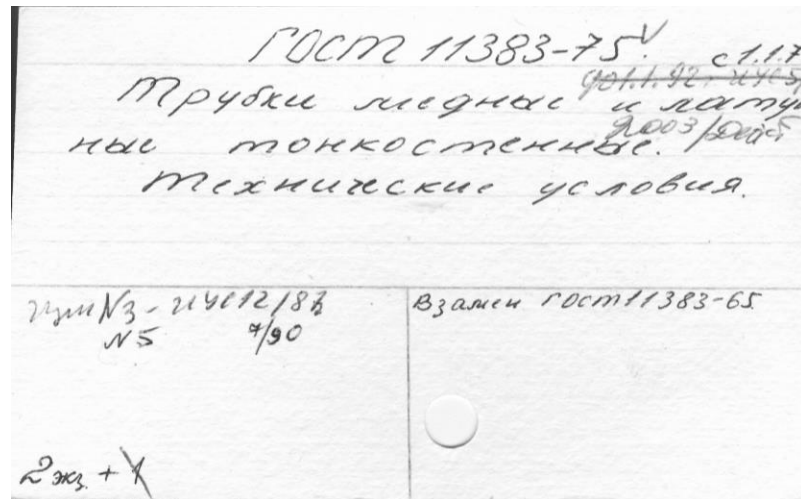 ГОСТ 11383-75 V с 1.1.7
до 1.1.92. ИУС 5
Трубки медные и лату
2003/дейст
ные тонкостенные.
Технические условия.
изм N3 - ИУС 12/87
N5 7/90
Взамен ГОСТ 11383-65
2 экз. + 1